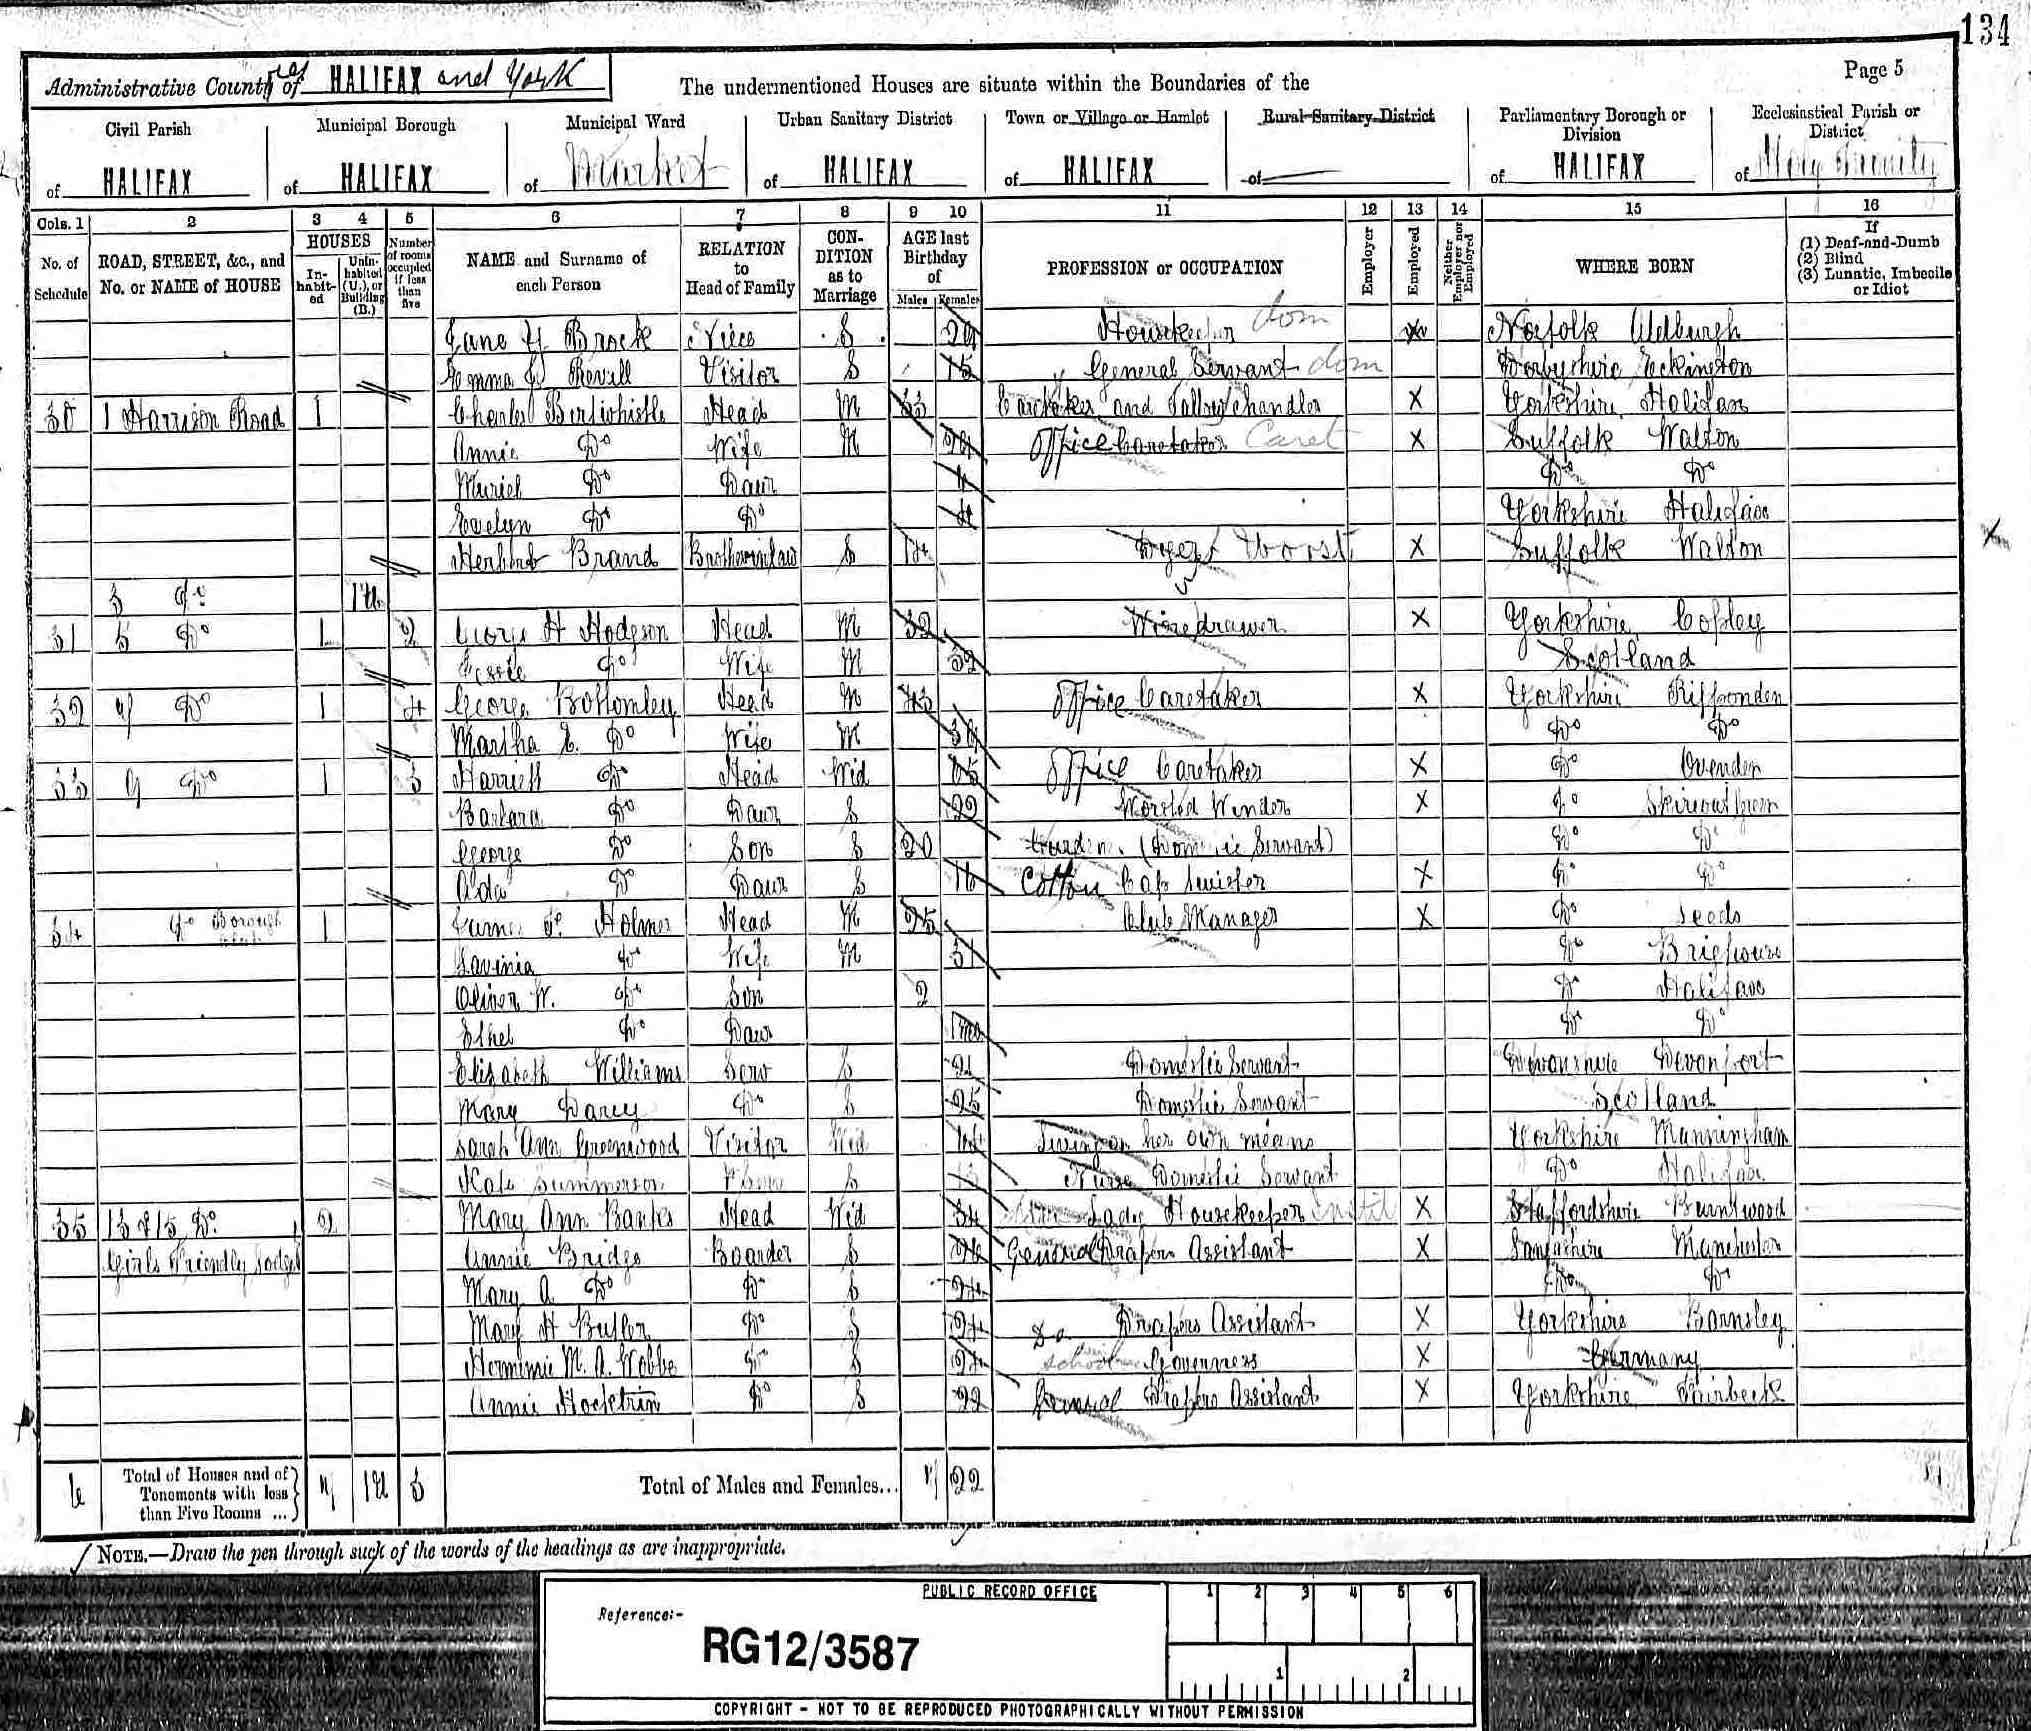 134
Administrative County of HALIFAX and York The undermentioned Houses are situate within the Boundaries of the Page 5
Civil Parish Municipal Borough Municipal Ward Urban Sanitary District Town or Village or Hamlet Rural Sanitary District Parliamentary Borough or Division Ecclesiastical Parish or District
of HALIFAX of HALIFAX of Market of HALIFAX of HALIFAX of of HALIFAX of Holy Trinity
Cols. 1 2 3 4 5 6 7 8 9 10 11 12 13 14 15 16
No. of Schedule ROAD, STREET, &c., and No. or NAME of HOUSE HOUSES Inhabited Uninhabited (U.), or Building (B.) Number of rooms occupied if less than five NAME and Surname of each Person RELATION to Head of Family CONDITION as to Marriage AGE last Birthday of Males Females PROFESSION or OCCUPATION Employer Employed Neither Employer nor Employed WHERE BORN If (1) Deaf-and-Dumb (2) Blind (3) Lunatic, Imbecile or Idiot
Jane Brock Niece S Housekeeper dom Norfolk Aldburgh
Emma Revill Visitor S 15 General Servant dom Derbyshire Eckington
30 1 Harrison Road 1 Charles Birtwhistle Head M 33 Caretaker and Chandler X Yorkshire Halifax
Annie Do Wife M Office Caretaker Caret X Suffolk Walton
Muriel Do Daur Do Do
Evelyn Do Do 4 Yorkshire Halifax
Herbert Brand Brother in law S 14 Dyer Worst X Suffolk Walton
3 Do 1U
31 5 Do 1 2 George H Hodgson Head M 32 Wiredrawer X Yorkshire Copley
Do Wife M 32 Scotland
32 7 Do 1 4 George Bottomley Head M 43 Office Caretaker X Yorkshire Ripponden
Martha E. Do Wife M Do Do
33 9 Do 1 3 Harriett Do Head Wid Office Caretaker X Do Ovenden
Barbara Do Daur S 22 Worsted Winder X Do
George Do Son S 20 (Domestic Servant) Do Do
Ada Do Daur S 16 Cotton Cap Twister X Do Do
34 Do Borough 1 James Holmes Head M 25 Club Manager X Do Leeds
Lavinia Do Wife M 31 Do Brighouse
Oliver W. Do Son 2 Do Halifax
Ethel Do Daur Do Do
Elizabeth Williams Serv S 21 Domestic Servant Devonshire Devonport
Mary Darcy Do S 25 Domestic Servant Scotland
Sarah Ann Greenwood Visitor Wid Living on her own means Yorkshire Manningham
Kate Summerson S Nurse Domestic Servant Do Halifax
35 13 & 15 Do 2 Mary Ann Banks Head Wid 34 Lady Housekeeper Instit X Staffordshire Burntwood
Girls Friendly Lodge Annie Bridge Boarder S General Drapers Assistant X Lancashire Manchester
Mary A Do Do S 24 Do Do
Mary H Butler Do S 24 Do Drapers Assistant X Yorkshire Barnsley
Herminie M. A. Wobbe Do S School Governess X Germany
Annie Do S 22 General Drapers Assistant X Yorkshire
6 Total of Houses and of Tenements with less than Five Rooms ... 7 1U 3 Total of Males and Females... 7 22
NOTE.—Draw the pen through such of the words of the headings as are inappropriate.
PUBLIC RECORD OFFICE 1 2 3 4 5 6
Reference:-
RG12/3587
1 2
COPYRIGHT - NOT TO BE REPRODUCED PHOTOGRAPHICALLY WITHOUT PERMISSION